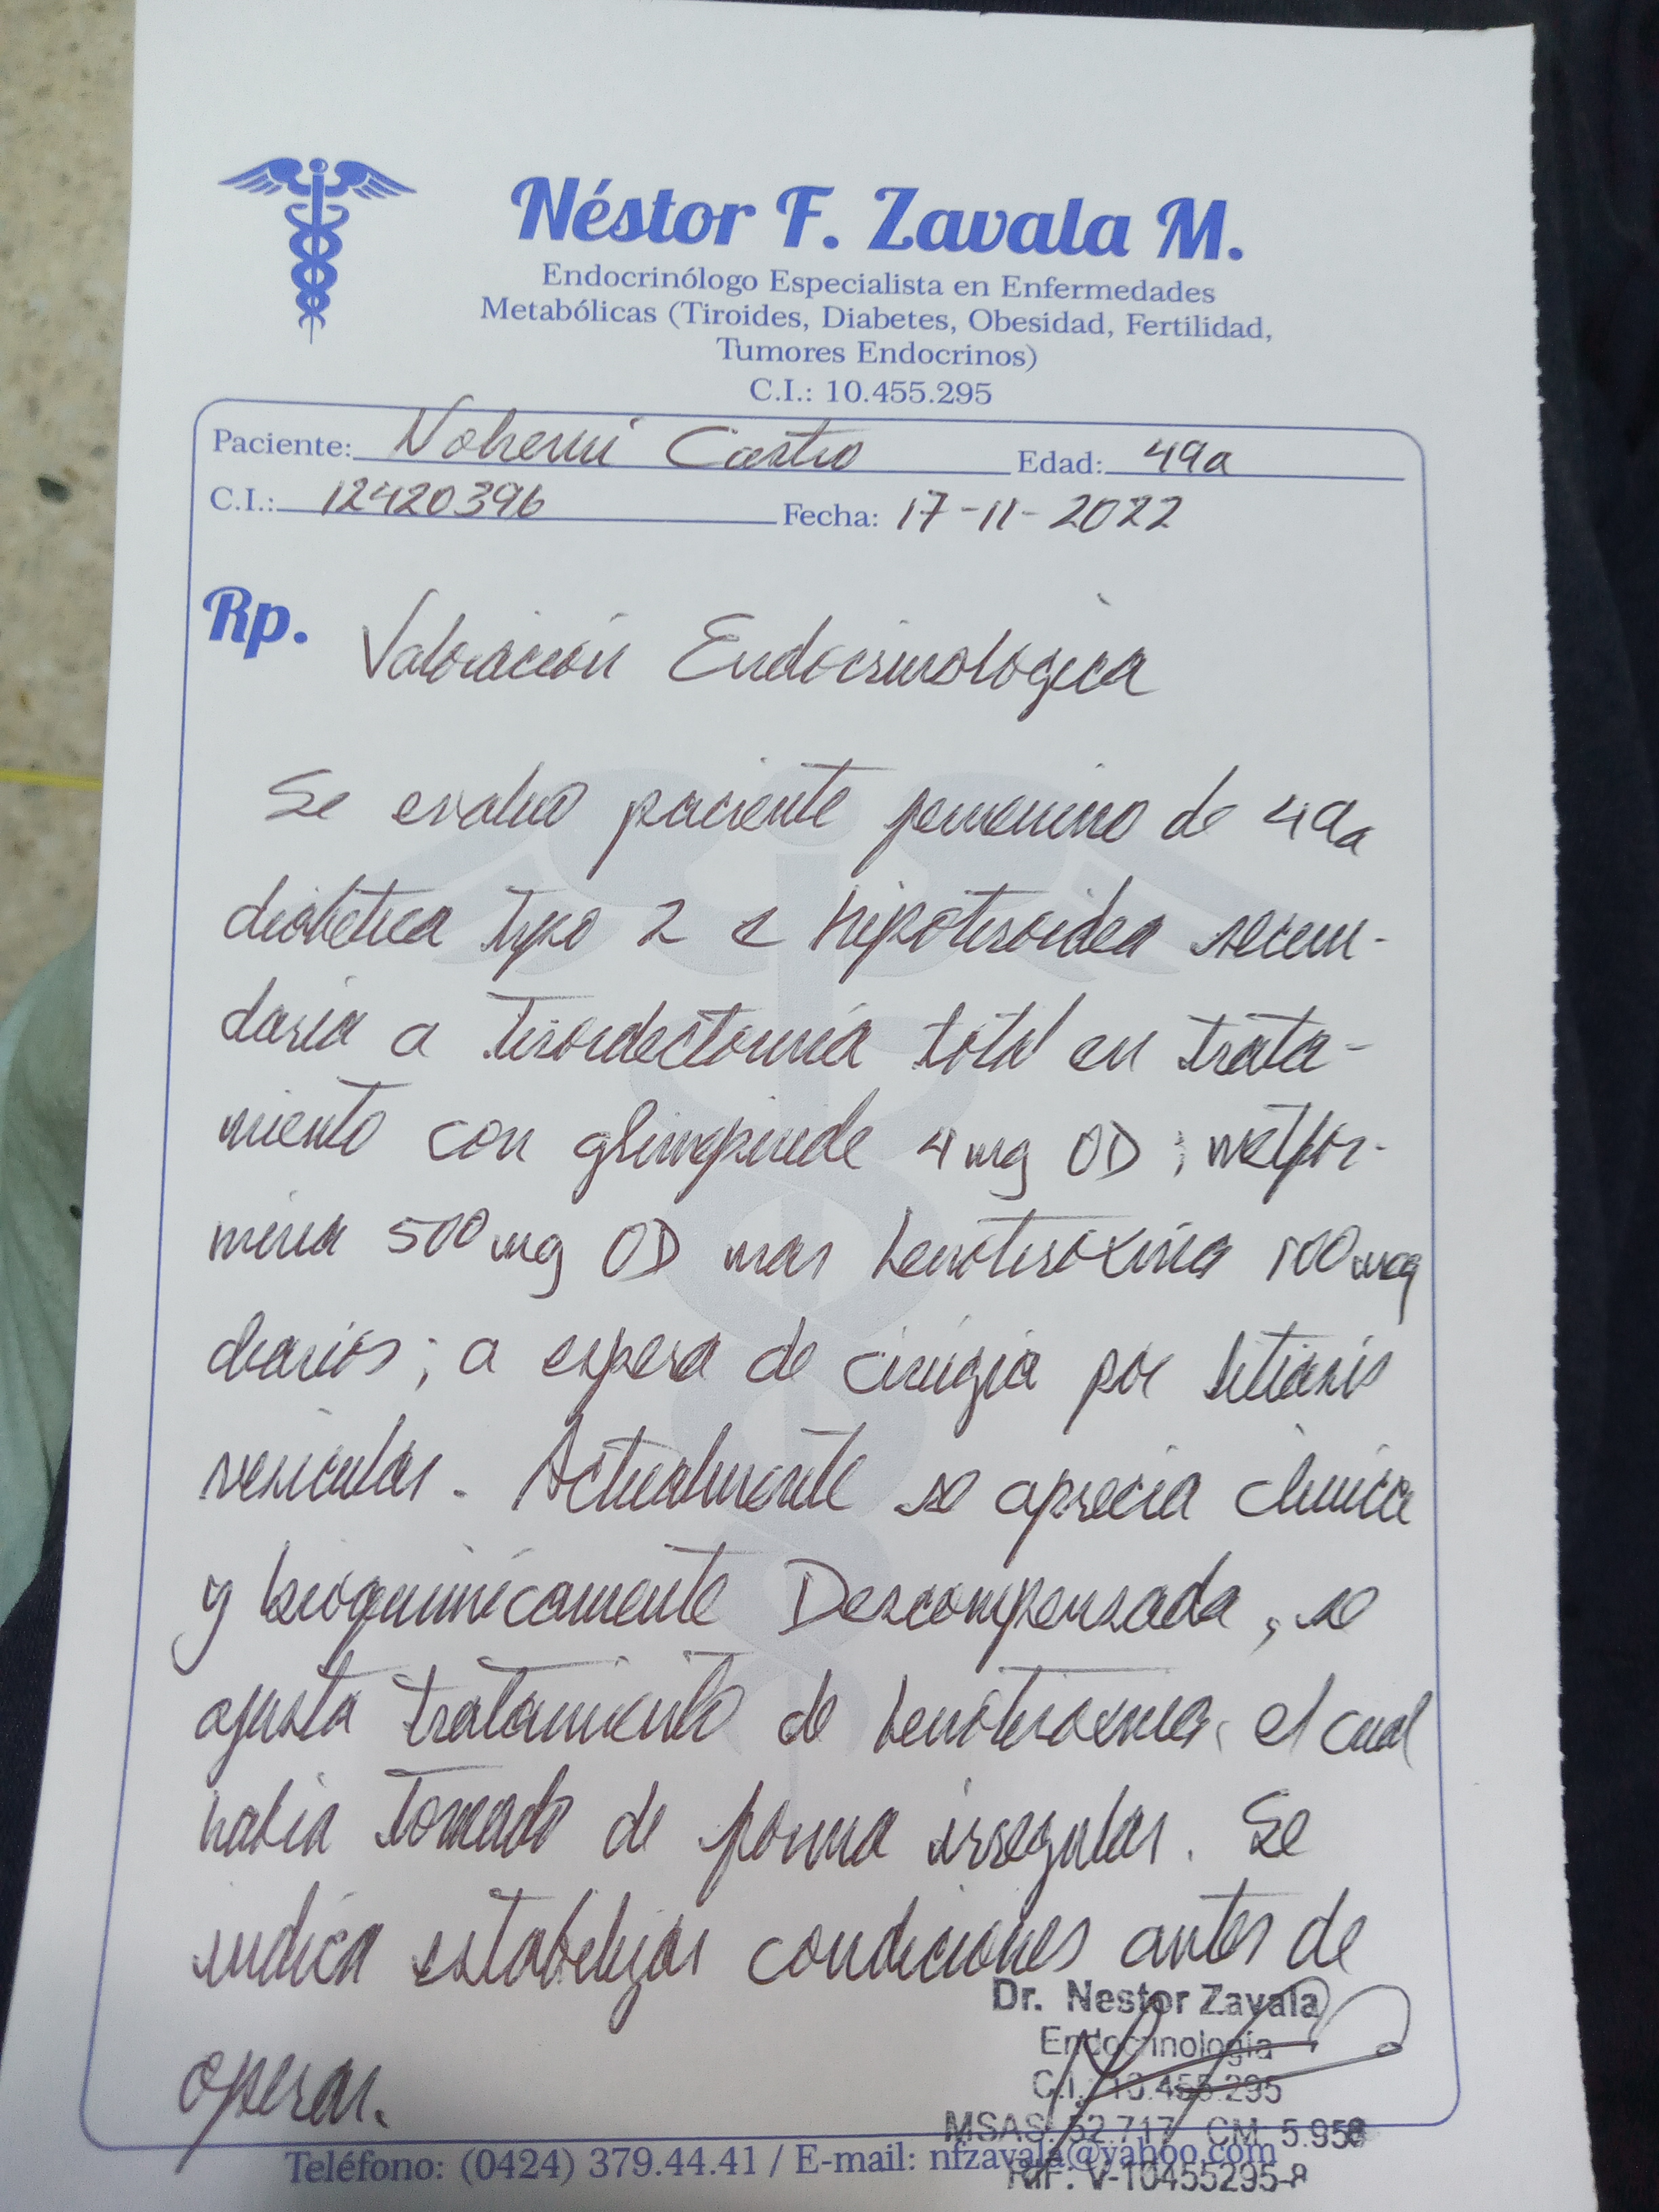 Néstor F. Zavala M.
Endocrinólogo Especialista en Enfermedades
Metabólicas (Tiroides, Diabetes, Obesidad, Fertilidad,
Tumores Endocrinos)
C.I.: 10.455.295
Paciente: Nohemi Castro Edad: 49a
C.I.: 12420396 Fecha: 17-11-2022
Rp. Valoración Endocrinologica
Se evaluo paciente femenino de 49a
diabetica tipo 2 e hipotiroidea secun-
daria a tiroidectomia total en trata-
miento con glimepiride 4 mg OD; metfor-
mina 500 mg OD mas levotiroxina 100 mcg
diarios; a espera de cirugia por litiasis
vesicular. Actualmente se aprecia clinica
y bioquimicamente Descompensada, se
ajusta tratamiento de levotiroxina, el cual
habia tomado de forma irregular. Se
indica estabilizar condiciones antes de
operar.
Dr. Nestor Zavala
Endocrinología
C.I.: 10.455.295
MSAS: 52.717 CM 5.958
Teléfono: (0424) 379.44.41 / E-mail: nfzavala@yahoo.com
RIF: V-10455295-8